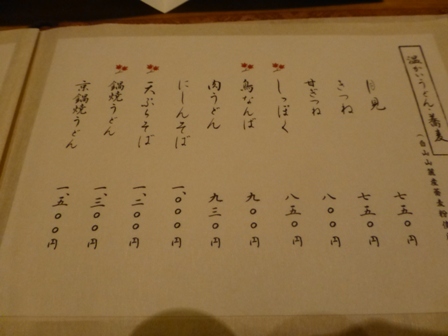 温かいうどん・蕎麦
月見 七五〇円
きつね 七五〇円
甘ぎつね 八〇〇円
しっぽく 八五〇円
鳥なんば 九〇〇円
肉うどん 九三〇円
にしんそば 一、〇〇〇円
天ぷらそば 一、二〇〇円
鍋焼うどん 一、三〇〇円
京鍋焼うどん 一、五〇〇円